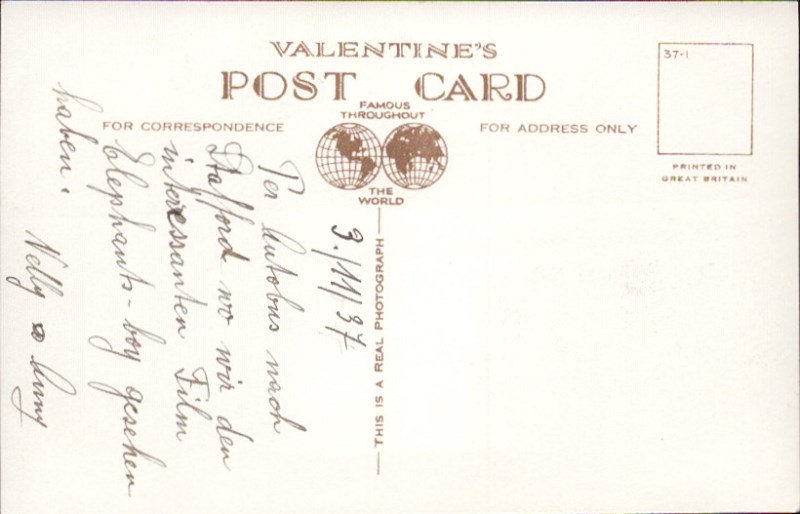 VALENTINE'S
POST CARD
FAMOUS
THROUGHOUT
FOR CORRESPONDENCE
FOR ADDRESS ONLY
THE
WORLD
37-1
PRINTED IN
GREAT BRITAIN
THIS IS A REAL PHOTOGRAPH
3./11/37
Per Autobus nach
Stafford wo wir den
interessanten Film
Elephants-boy gesehen
haben.
Nelly & Anny